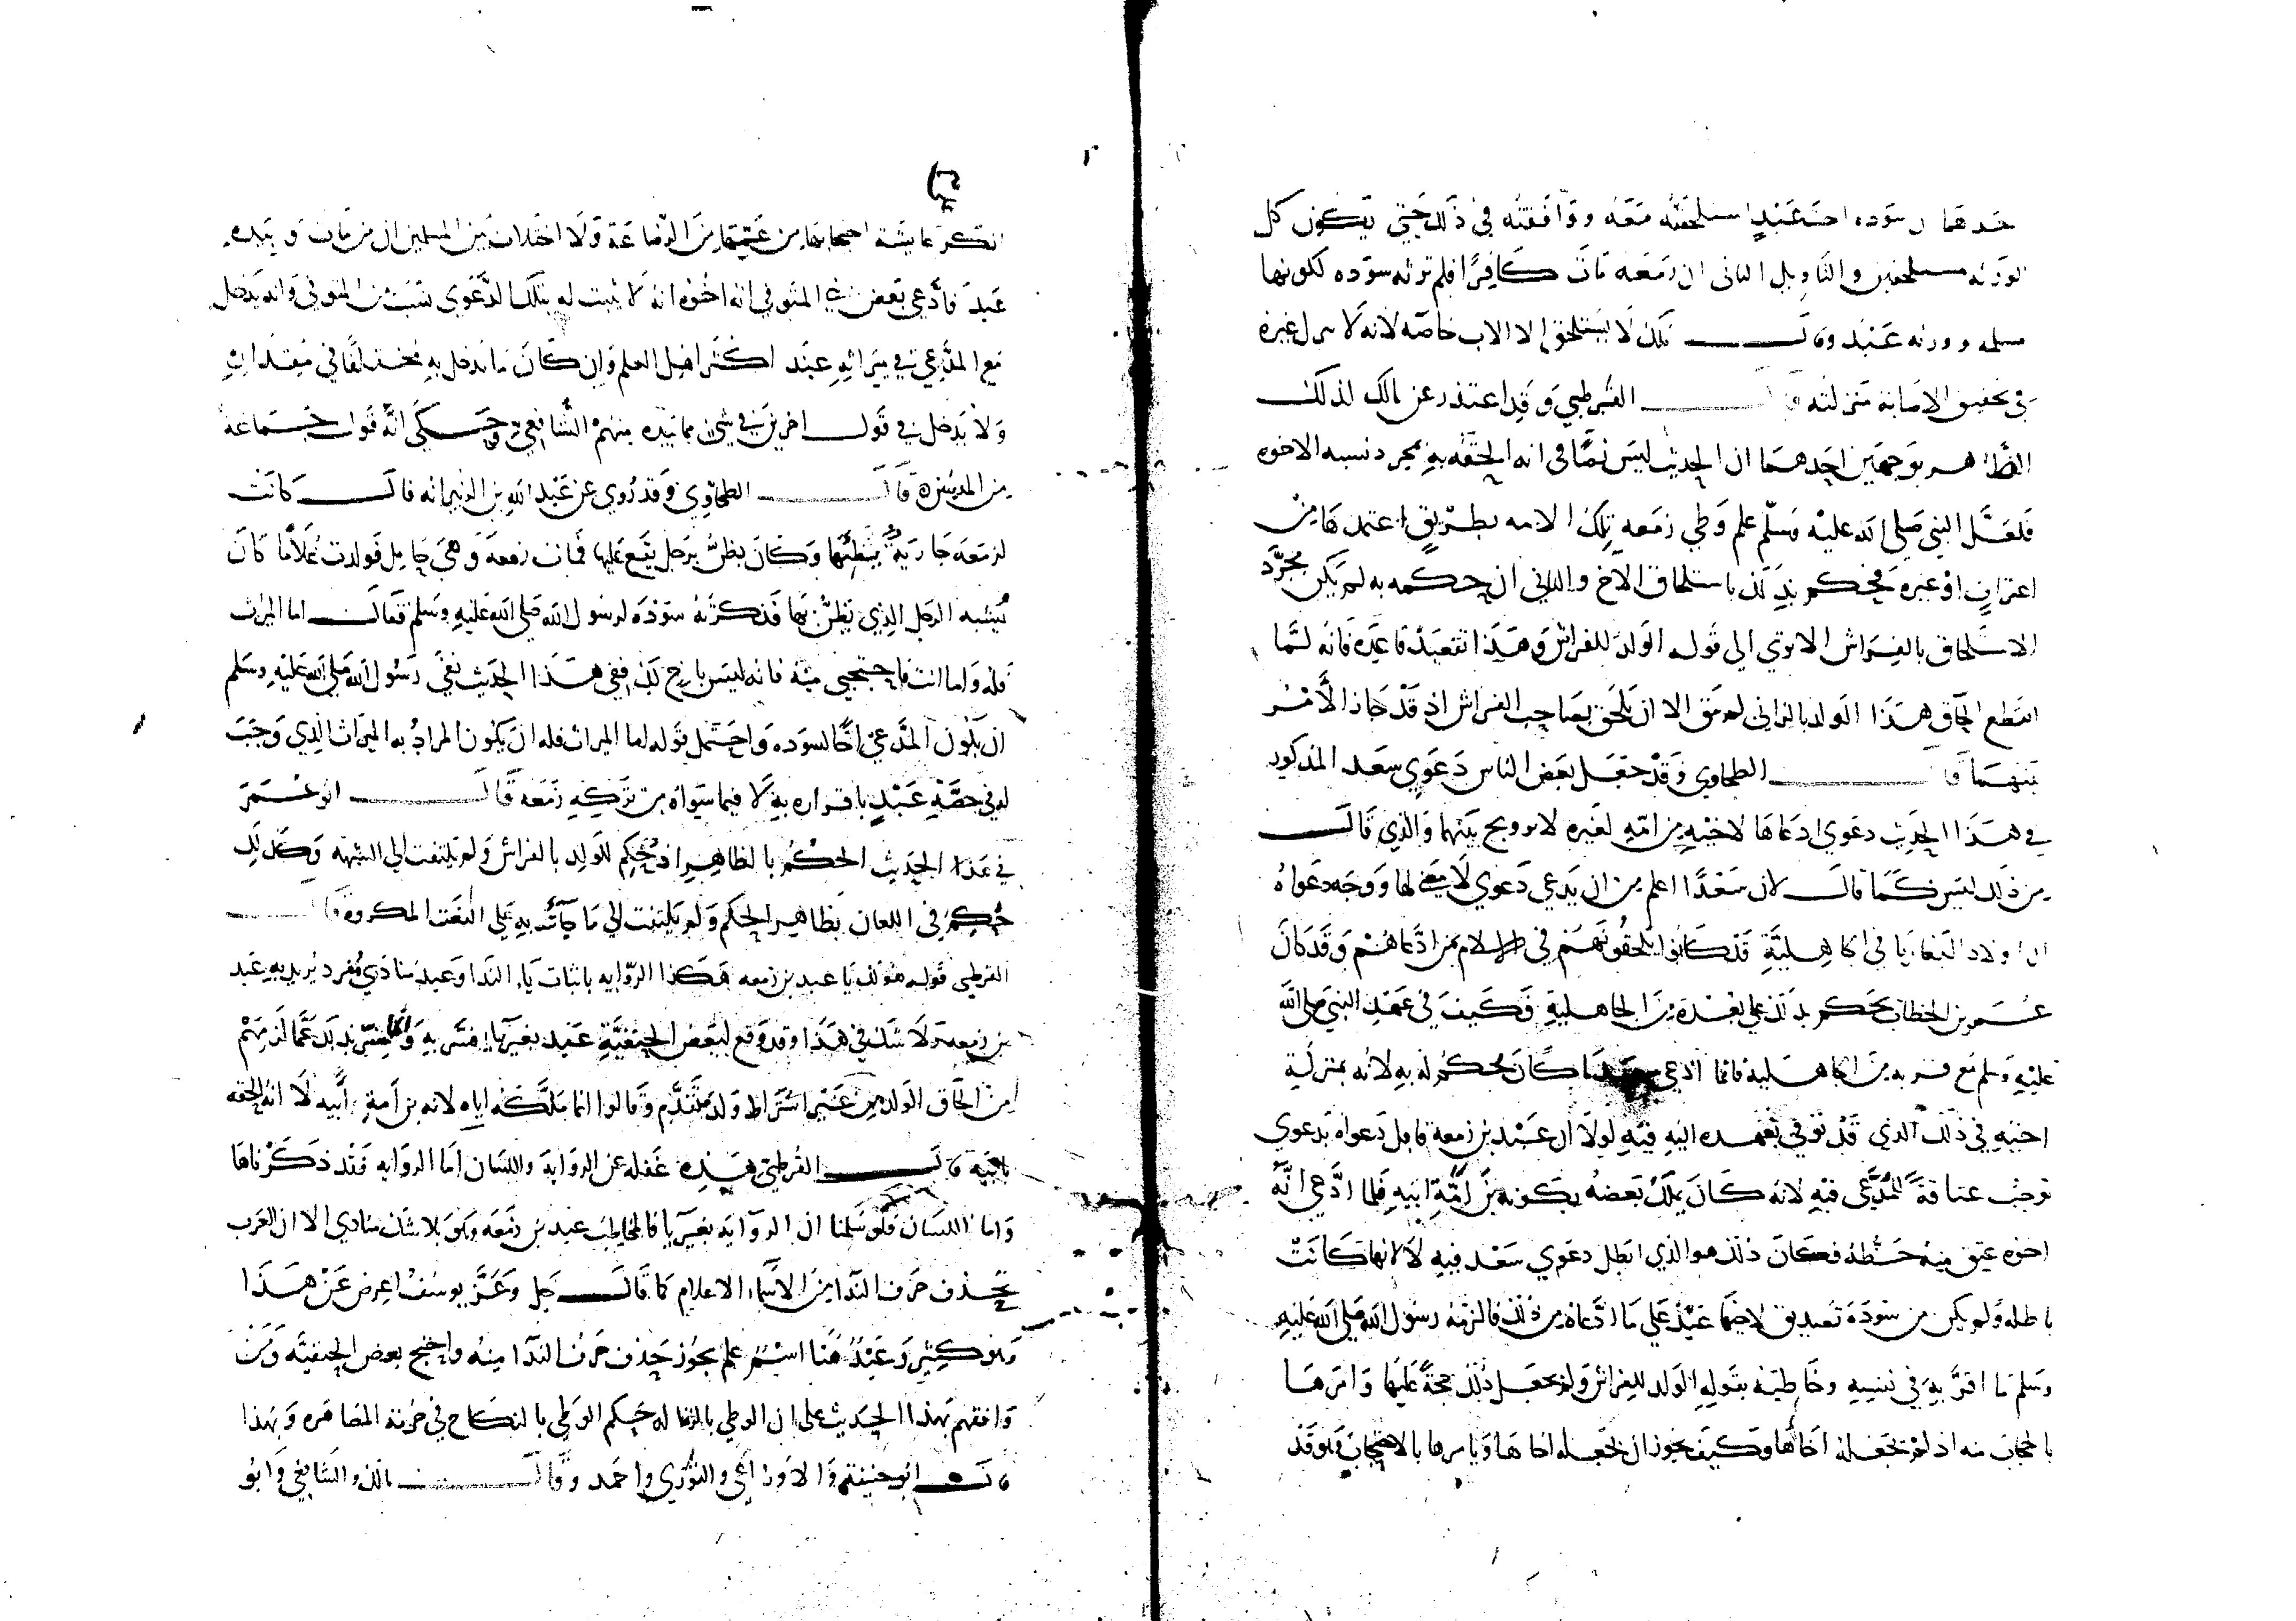 احدهما ان سوده اخت عبد استلحقته معه ووافقته في ذلك حتي يكون كل
الورثه مستلحقين والتاويل الثاني ان زمعه مات كافرا فلم ترثه سوده لكونها
مسلمه وورثه عبد وقال مالك لا يستلحق الا الاب خاصه لانه لا ينزل غيره
في تحقيق الاصابة منزلته قال القرطبي وقد اعتذر عن مالك لذلك
الظاهر بوجهين احدهما ان الحديث ليس نصا في انه الحقه به بمجرد نسبه الاخوه
فلعل النبي صلي الله عليه وسلم علم وطي زمعه تلك الامه بطريق اعتمدها من
اعتراف او غيره فحكم بذلك لا باستلحاق الاخ والثاني ان حكمه به لم يكن بمجرد
الاستلحاق بالفراش الا تري الي قوله الولد للفراش وهذا تقعيد قاعده فانه لما
انقطع الحاق هذا الولد بالزاني لم يبق الا ان يلحق بصاحب الفراش اذ قد حاز الامر
بينهما قال الطحاوي وقد جعل بعض الناس دعوي سعد المذكور
في هذا الحديث دعوي ادعاها لاخيه من امه لغيره لا تزويج بينهما والذي قال
من ذلك ليس كما قال لان سعدا اعلم من ان يدعي دعوي لا معني لها ووجه دعواه
ان اولاد البغايا في الجاهلية قد كانوا يلحقونهم في الاسلام بمن ادعاهم وقد كان
عمر بن الخطاب يحكم بذلك علي بعده من الجاهلية فكيف في عهد النبي صلي الله
عليه وسلم مع قربه من الجاهلية فانما ادعي كان يحكم له به لانه بمنزلة
اخيه في ذلك الذي قد توفي بعهده اليه فيه لولا ان عبد بن زمعة قابل دعواه بدعوي
توجب عتاقة للمدعي فيه لانه كان يملك بعضه بكونه بن امة ابيه فلما ادعي انه
اخوه عتق منه حظه فكان ذلك هو الذي ابطل دعوي سعد فيه لا لانها كانت
باطله ولم يكن من سودة تصديق لاخيها عبد علي ما ادعاه من ذلك فالزمه رسول الله صلي الله عليه
وسلم ما اقر به في نفسه وخاطبه بقوله الولد للفراش ولم يجعل ذلك حجة عليها وامرها
بالحجاب منه اذ لم يجعله اخاها وكيف يجوز ان يجعله اخاها ويامرها بالاحتجاب وقد
انكر عايشة احتجابها من عمها من الرضاعة ولا اختلاف بين المسلمين ان من مات وبيده
عبد فادعي بعض المتوفي انه اخوه انه لا يثبت له بتلك الدعوي نسب من المتوفي وانه يدخل
مع المدعي في ميراثه عند اكثر اهل العلم وان كان ما يدخل به مختلفا في مقداره
ولا يدخل في قول اخرين في شيء مما بيده منهم الشافعي وحكي انه قول جماعة
من المدينين قال الطحاوي وقد روي عن عبد الله بن الزبير انه قال كانت
لزمعه جارية يبطنها وكان يظن برجل يقع عليها فمات زمعة وهي حامل فولدت غلاما كان
يشبه الرجل الذي يظن بها فذكرته سودة لرسول الله صلي الله عليه وسلم فقال اما الميراث
فله واما انت فاحتجبي منه فانه ليس باخ لك ففي هذا الحديث نفي رسول الله صلي الله عليه وسلم
ان يكون المدعي اخا لسوده واحتمل قوله اما الميراث فله ان يكون المراد به الميراث الذي وجب
له في حصة عبد باقراره به لا فيما سواه من تركه زمعه قال ابو عمر
في هذا الحديث الحكم بالظاهر اذ حكم للولد بالفراش ولم يلتفت الي الشبه وكذلك
حكم في اللعان بظاهر الحكم ولم يلتفت الي ما جاءت به علي النعت المكروه قال
القرطبي قوله هو لك يا عبد بن زمعه هكذا الروايه باثبات ياء الندا وعبد منادي مفرد يريد به عبد
بن زمعه ولا شك في هذا وقد وقع لبعض الحنفية عبد بغير يا فسر به وانما فسر بذلك عما لزمهم
من الحاق الولد من غير اشتراط ولد متقدم وقالوا انما ملكه اياه لانه بن امة ابيه لا انه الحقه
بابيه قال القرطبي هذه غفله عن الرواية واللسان اما الروايه فقد ذكرناها
واما اللسان فلو سلمنا ان الرواية بغير يا فالمخاطب عبد بن زمعه وهو بلا شك منادي الا ان العرب
تحذف حرف الندا من الاسماء الاعلام كما قال جل وعز يوسف اعرض عن هذا
وهو كثير وعبد هنا اسم علم يجوز حذف حرف الندا منه واحتج بعض الحنفية ومن
وافقهم بهذا الحديث علي ان الوطي بالزنا له حكم الوطي بالنكاح في حرمة المصاهره وبهذا
قال ابو حنيفة والاوزاعي والثوري واحمد وقال مالك والشافعي وابو